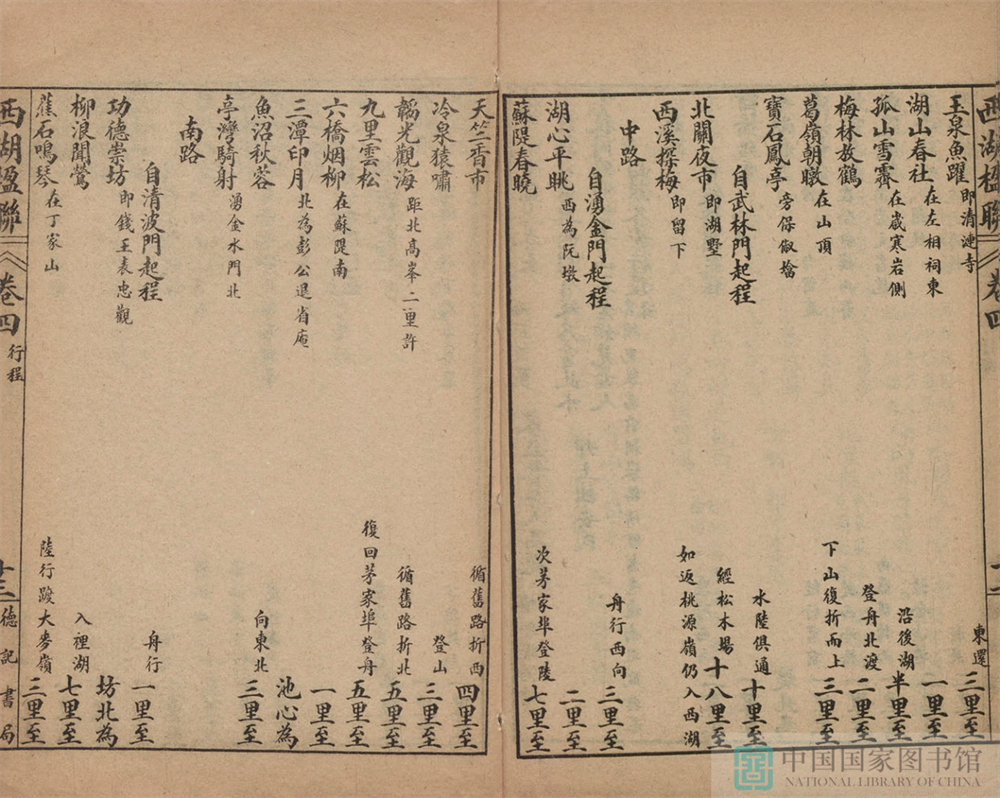 西湖楹聯 卷四
玉泉魚躍 即清漣寺 東還 三里至
湖山春社 在左相祠東 一里至
孤山雪霽 在歲寒岩側 沿後湖 半里至
梅林放鶴 登舟北渡 二里至
葛嶺朝暾 在山頂 下山復折而上 三里至
寶石鳳亭 旁保俶墖
自武林門起程 水陸俱通 十里至
北關夜市 即湖墅 經松木場 十八里至
西溪探梅 即留下 如返桃源嶺仍入西湖
中路
自湧金門起程 舟行西向 三里至
湖心平眺 西為阮墩 二里至
蘇隄春曉 次茅家埠登陸 七里至
天竺香市 循舊路折西 四里至
冷泉猿嘯 登山 三里至
韜光觀海 距北高峯二里許 循舊路折北 五里至
九里雲松 復回茅家埠登舟 五里至
六橋烟柳 在蘇隄南 一里至
三潭印月 北為彭公退省庵 池心為
魚沼秋蓉 向東北 三里至
亭灣騎射 湧金水門北
南路
自清波門起程 舟行 一里至
功德崇坊 即錢王表忠觀 坊北為
柳浪聞鶯 入裡湖 七里至
蕉石鳴琴 在丁家山 陸行踰大麥嶺 三里至
西湖楹聯 卷四 行程 十三 德記書局
中国国家图书馆
NATIONAL LIBRARY OF CHINA